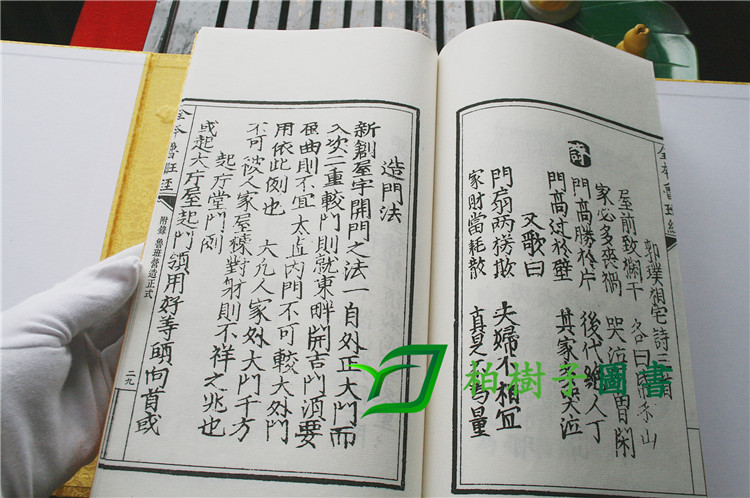 全本魯班經
郭璞相宅詩三首
屋前致欄干 名曰紙糸山
家必多喪禍 哭泣 曾閑
詩
門高勝於片 後代絕人丁
門高过於壁 其家 哭泣
又歌曰
門扇两榜欺 夫婦不相宜
家財當耗散 真是 為量
造門法
新創屋宇開門之法一自外正大門而
入次二重較門則就東畔開吉門須要
屈曲則不宜太直内門不可較大外門
用依此例也 大凢人家外大門千万
不可被人家屋樑對射則不祥之兆也
起庁堂門例
或起大庁屋起門須用好等頭向首或
全本魯班經 附錄 魯班營造正式 二九
柏樹子圖書